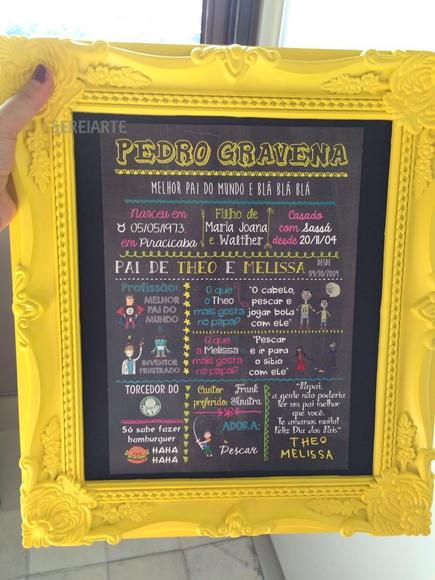 SEREIARTE
PEDRO GRAVENA
MELHOR PAI DO MUNDO E BLÁ BLÁ BLÁ
Nasceu em
05/05/1973
em Piracicaba
Filho de
Maria Joana
e Walther
Casado
com Sassá
desde 20/11/04
PAI DE THEO E MELISSA DESDE
09/10/2009
Profissão:
MELHOR
PAI DO
MUNDO
E
INVENTOR
FRUSTRADO
O que
o Theo
mais gosta
no papai?
"O cabelo,
pescar e
jogar bola
com ele"
O que
a Melissa
mais gosta
no papai?
"Pescar
e ir para
o sitio
com ele"
TORCEDOR DO
Só sabe fazer
hamburguer
HAHA
HAHA
Cantor Frank
preferido: Sinatra
ADORA:
Pescar
"Papai,
a gente não poderia
ter um pai melhor
que você.
Te amamos muito!
Feliz Dia dos Pais"
THEO
MELISSA